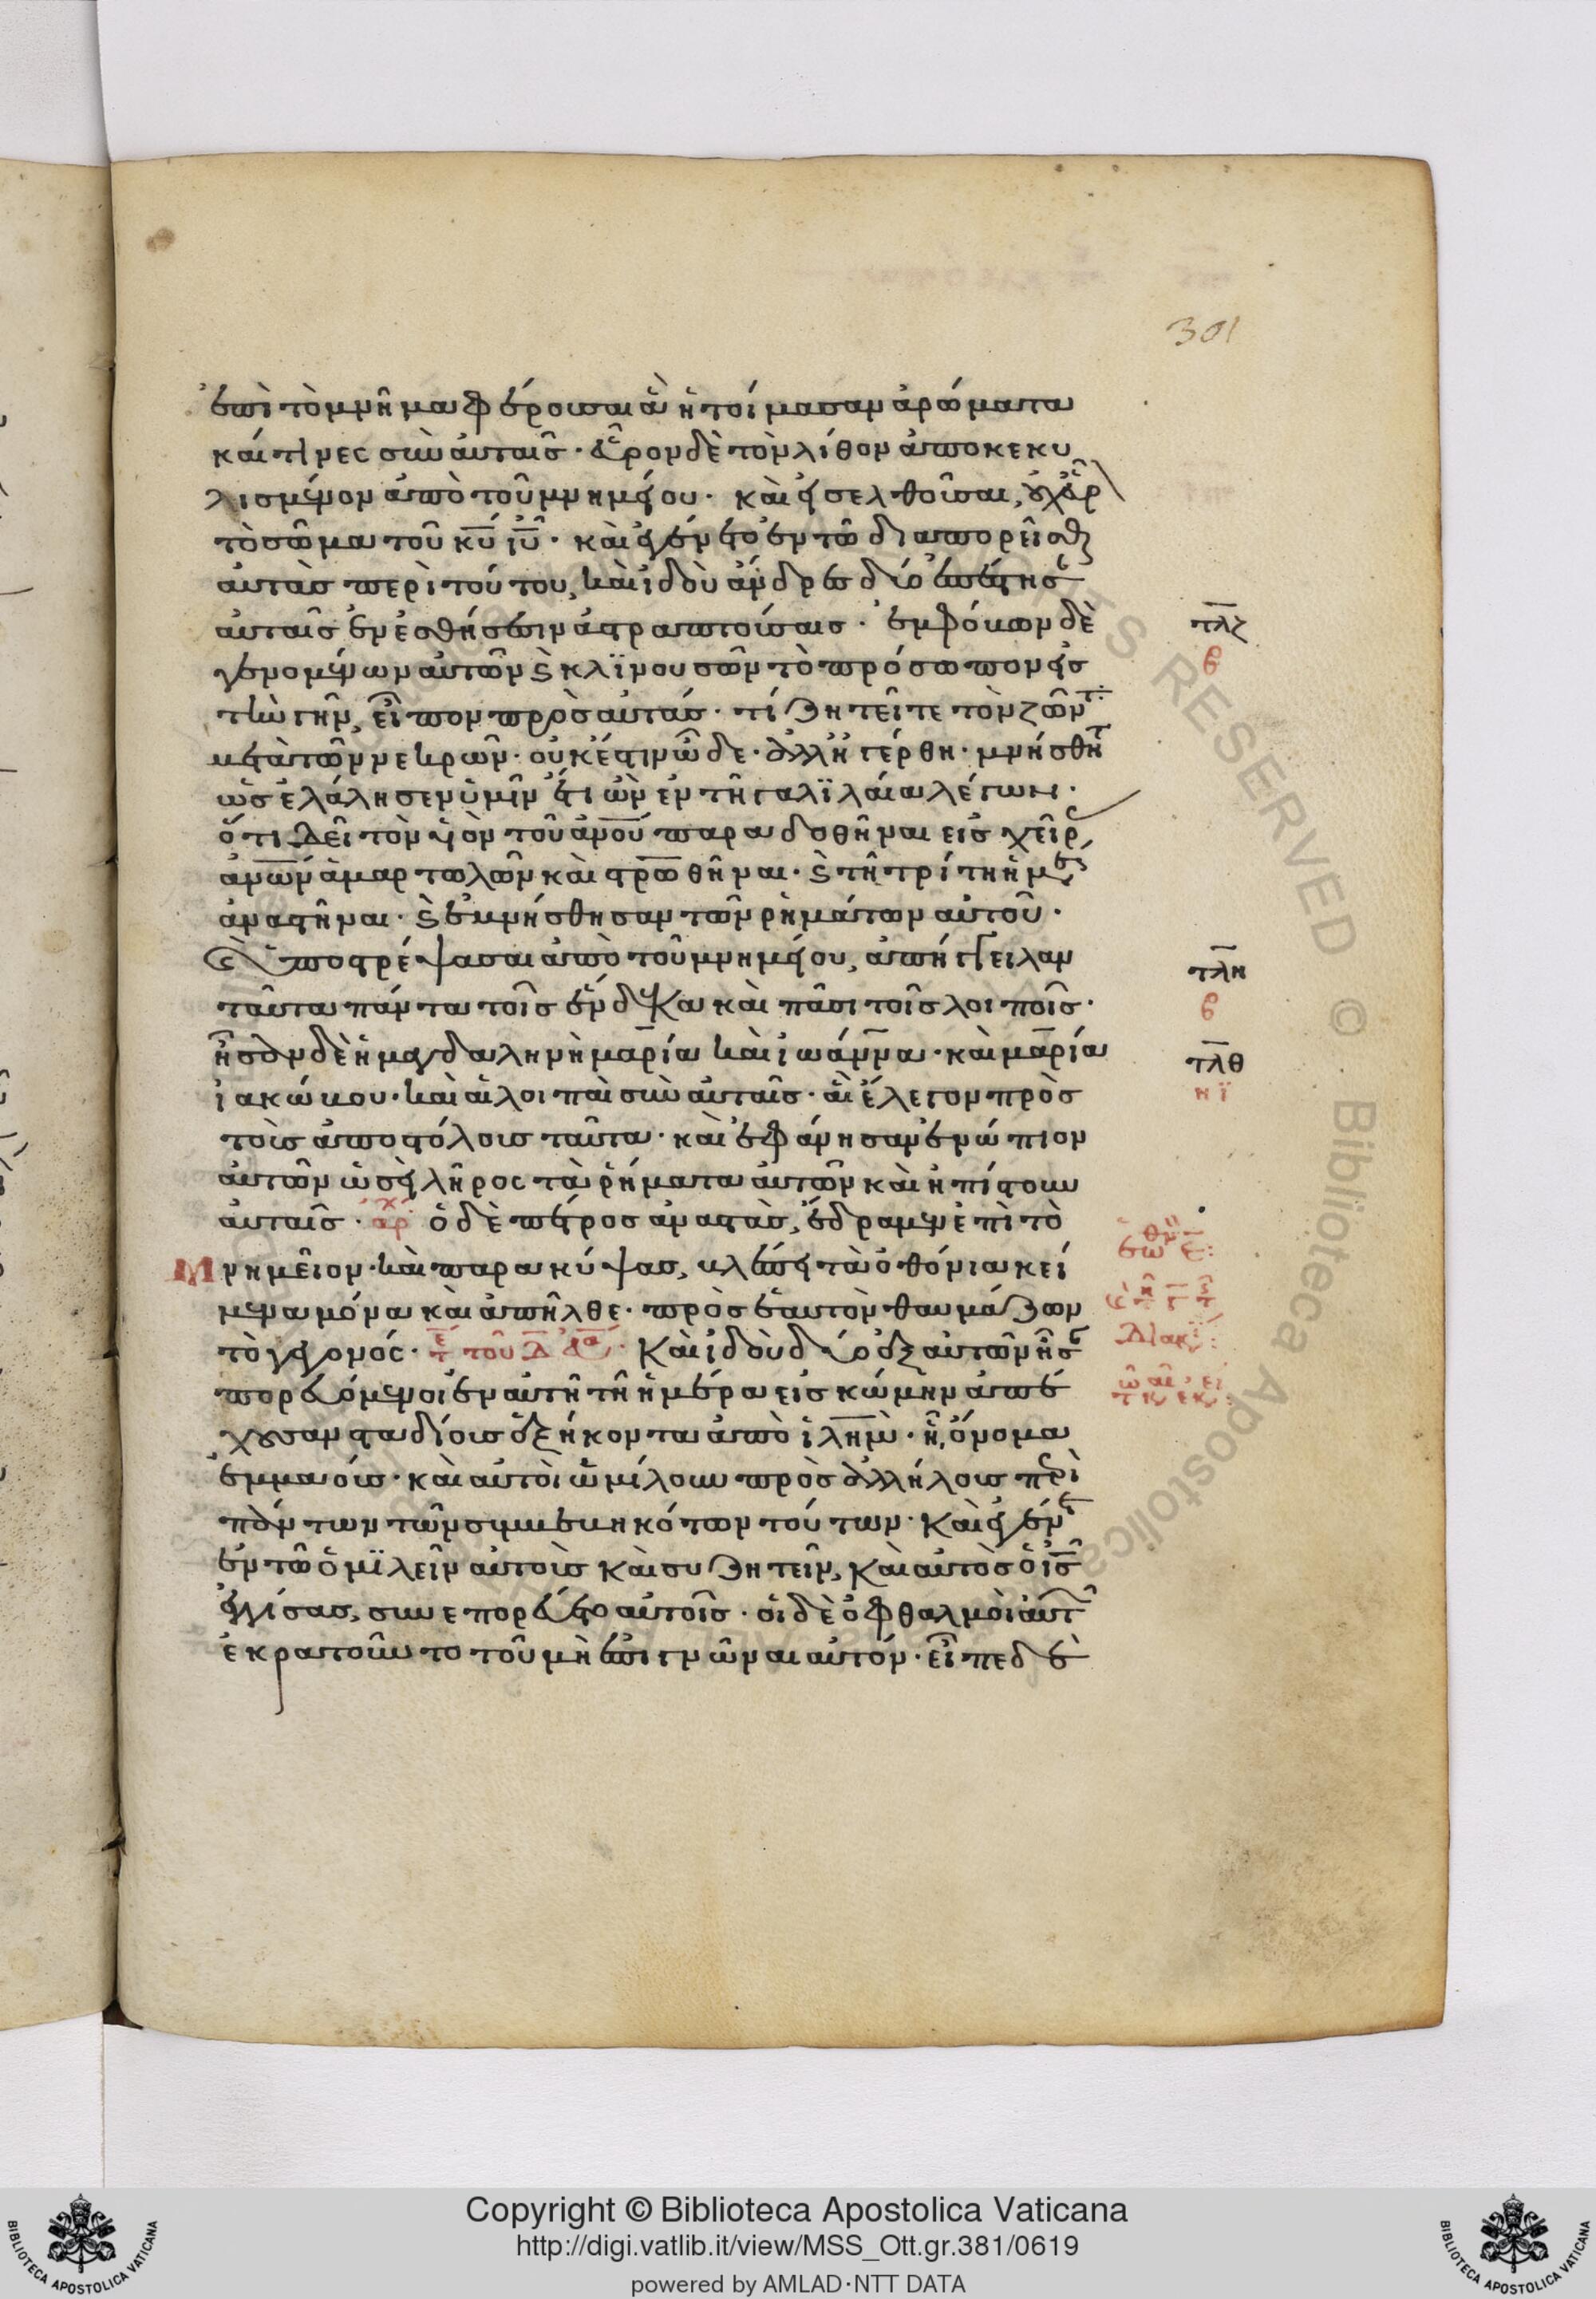 301
ἐπὶ τὸ μνῆμα φέρουσαι ἃ ἡτοίμασαν ἀρώματα
καί τινες σὺν αὐταῖς· εὗρον δὲ τὸν λίθον ἀποκεκυ
λισμένον ἀπὸ τοῦ μνημείου· καὶ εἰσελθοῦσαι, οὐχ εὗρ
τὸ σῶμα τοῦ κ̅υ̅ ι̅υ̅· καὶ ἐγένετο ἐν τῶ διαπορεῖσθαι
αὐτὰς περὶ τούτου, καὶ ἰδοὺ ἄνδρες δύο ἐπέστησ
αὐταῖς ἐν ἐσθήσεσιν ἀστραπτούσαις· ἐμφόβων δὲ
γενομένων αὐτῶν καὶ κλϊνουσῶν τὸ πρόσωπον εἰς
τὴν γῆν, εἶπον πρὸς αὐτάς· τί ζητεῖτε τὸν ζῶντ
μετὰ τῶν νεκρῶν· οὐκ ἔστιν ὧδε· ἀλλ' ἠγέρθη· μνήσθητ
ὡς ἐλάλησεν ὑμῖν ἔτι ὢν ἐν τῆ γαλϊλαία λέγων·
ὅτι δεῖ τὸν υἱὸν τοῦ ἀν̅ο̅υ̅ παραδοθῆναι εἰς χεῖρ
ἀν̅ω̅ν̅ ἁμαρτωλῶν καὶ στρ̅ω̅θῆναι· καὶ τῆ τρίτη ἡμέρ
ἀναστῆναι· καὶ ἐμνήσθησαν τῶν ῥημάτων αὐτοῦ·
καὶ ὑποστρέψασαι ἀπὸ τοῦ μνημείου, ἀπήγγειλαν
ταῦτα πάντα τοῖς ἕνδεκα καὶ πᾶσι τοῖς λοιποῖς·
ἦσαν δὲ ἡ μαγδαληνὴ μαρία καὶ ἰωάννα· καὶ μαρία
ἰακώβου· καὶ αἱ λοιπαὶ σὺν αὐταῖς· αἳ ἔλεγον πρὸς
τοὺς ἀποστόλους ταῦτα· καὶ ἐφάνησαν ἐνώπιον
αὐτῶν ὡσεὶ λῆρος τὰ ῥήματα αὐτῶν καὶ ἠπίστουν
αὐταῖς· ἀρχ ὁ δὲ πέτρος ἀναστὰς, ἔδραμεν ἐπὶ τὸ
μνημεῖον· καὶ παρακύψας, βλέπει τὰ ὀθόνια κεί
μενα μόνα καὶ ἀπῆλθε· πρὸς ἑαυτὸν θαυμάζων
τὸ γεγονός· Καὶ ἰδοὺ δύο ἐξ αὐτῶν ἦσ
πορευόμενοι ἐν αὐτῆ τῆ ἡμέρα εἰς κώμην ἀπέ
χουσαν σταδίους ἑξήκοντα ἀπὸ ἱλ̅η̅μ̅· ἧ ὄνομα
ἐμμαούς· καὶ αὐτοὶ ὡμίλουν πρὸς ἀλλήλους περὶ
πάντων τῶν συμβεβηκότων τούτων· Καὶ ἐγένετ
ἐν τῶ ὁμϊλεῖν αὐτοὺς καὶ συζητεῖν, καὶ αὐτὸς ὁ ι̅ς̅
ἐγγίσας, συνεπορεύετο αὐτοῖς· οἱ δὲ ὀφθαλμοὶ αὐτ
ἐκρατοῦντο τοῦ μὴ ἐπιγνῶναι αὐτόν· εἶπε δὲ
τλζ
β
τλη
β
τλθ
ηϊ
Copyright © Biblioteca Apostolica Vaticana
http://digi.vatlib.it/view/MSS_Ott.gr.381/0619
powered by AMLAD·NTT DATA